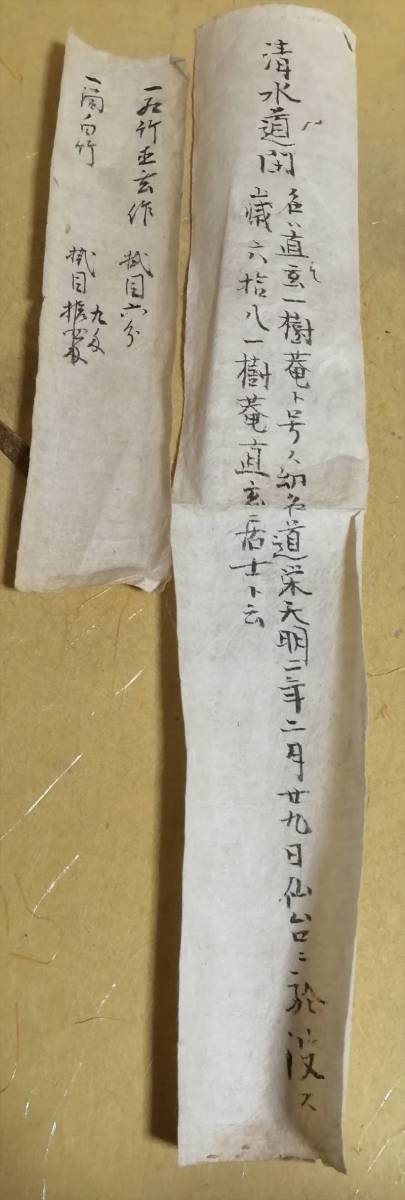 清水道閑
名ハ直玄一樹菴ト号ス幼名道栄天明二年二月廿九日仙台ニ於没ス
歳六拾八一樹菴直玄居士ト云
一 石竹直玄作 拭目六分
一 筒白竹 拭目